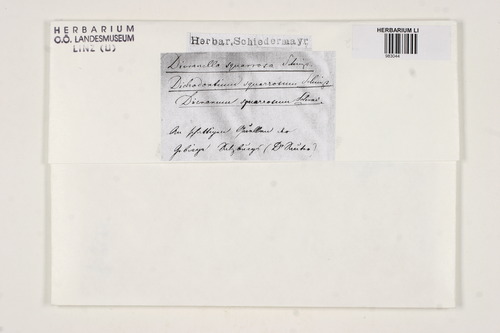 HERBARIUM
O.Ö. LANDESMUSEUM
LINZ (U)
HERBARIUM LI
Herbar. Schiedermayr
Dicranella squarrosa Schimp.
Dichodontium squarrosum Schimp
Dicranum squarrosum Schrad.
An schattigen Quellen der
Gebirge Salzburgs (Dr Sauter)